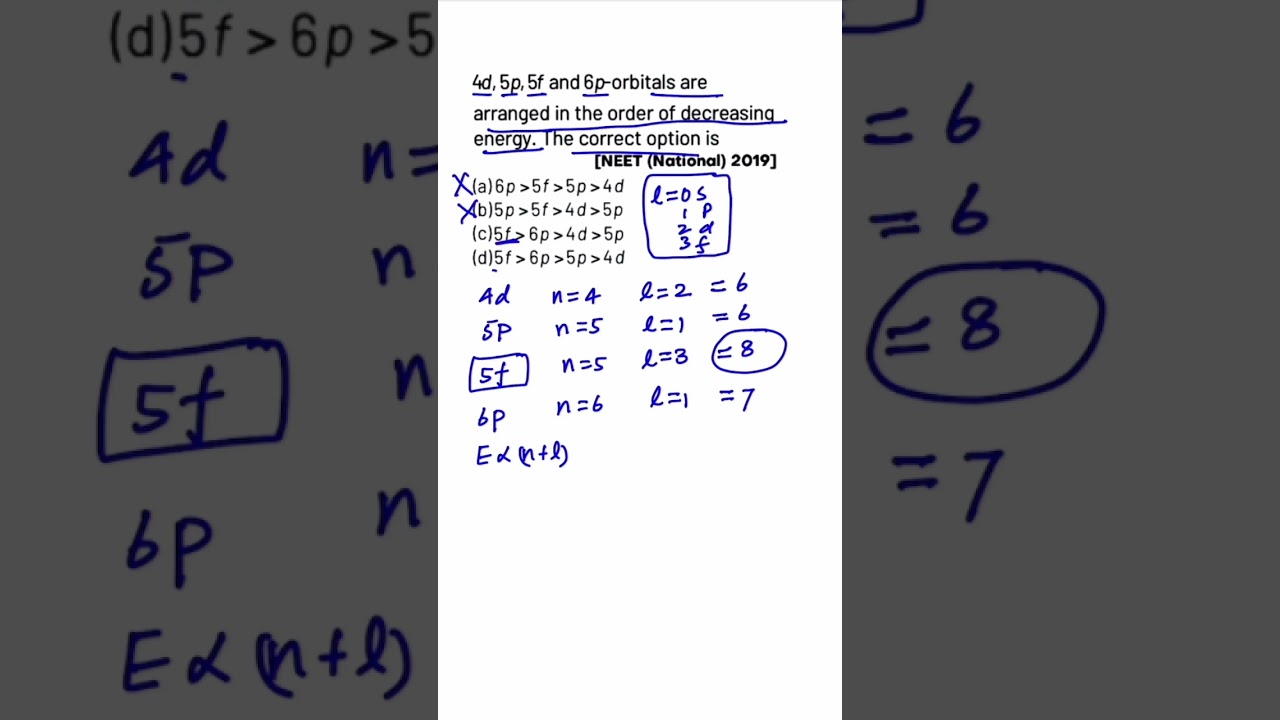 4d, 5p, 5f and 6p-orbitals are
arranged in the order of decreasing
energy. The correct option is
[NEET (National) 2019]
X(a)6p>5f>5p>4d
X(b)5p>5f>4d>5p
(c)5f>6p>4d>5p
(d)5f>6p>5p>4d
l=0 s
1 p
2 d
3 f
4d n=4 l=2 =6
5p n=5 l=1 =6
5f n=5 l=3 =8
6p n=6 l=1 =7
E∝(n+l)
(d)5f>6p>5
4d n=
5p n
5f n
6p n
E∝(n+l)
=6
=6
=8
=7